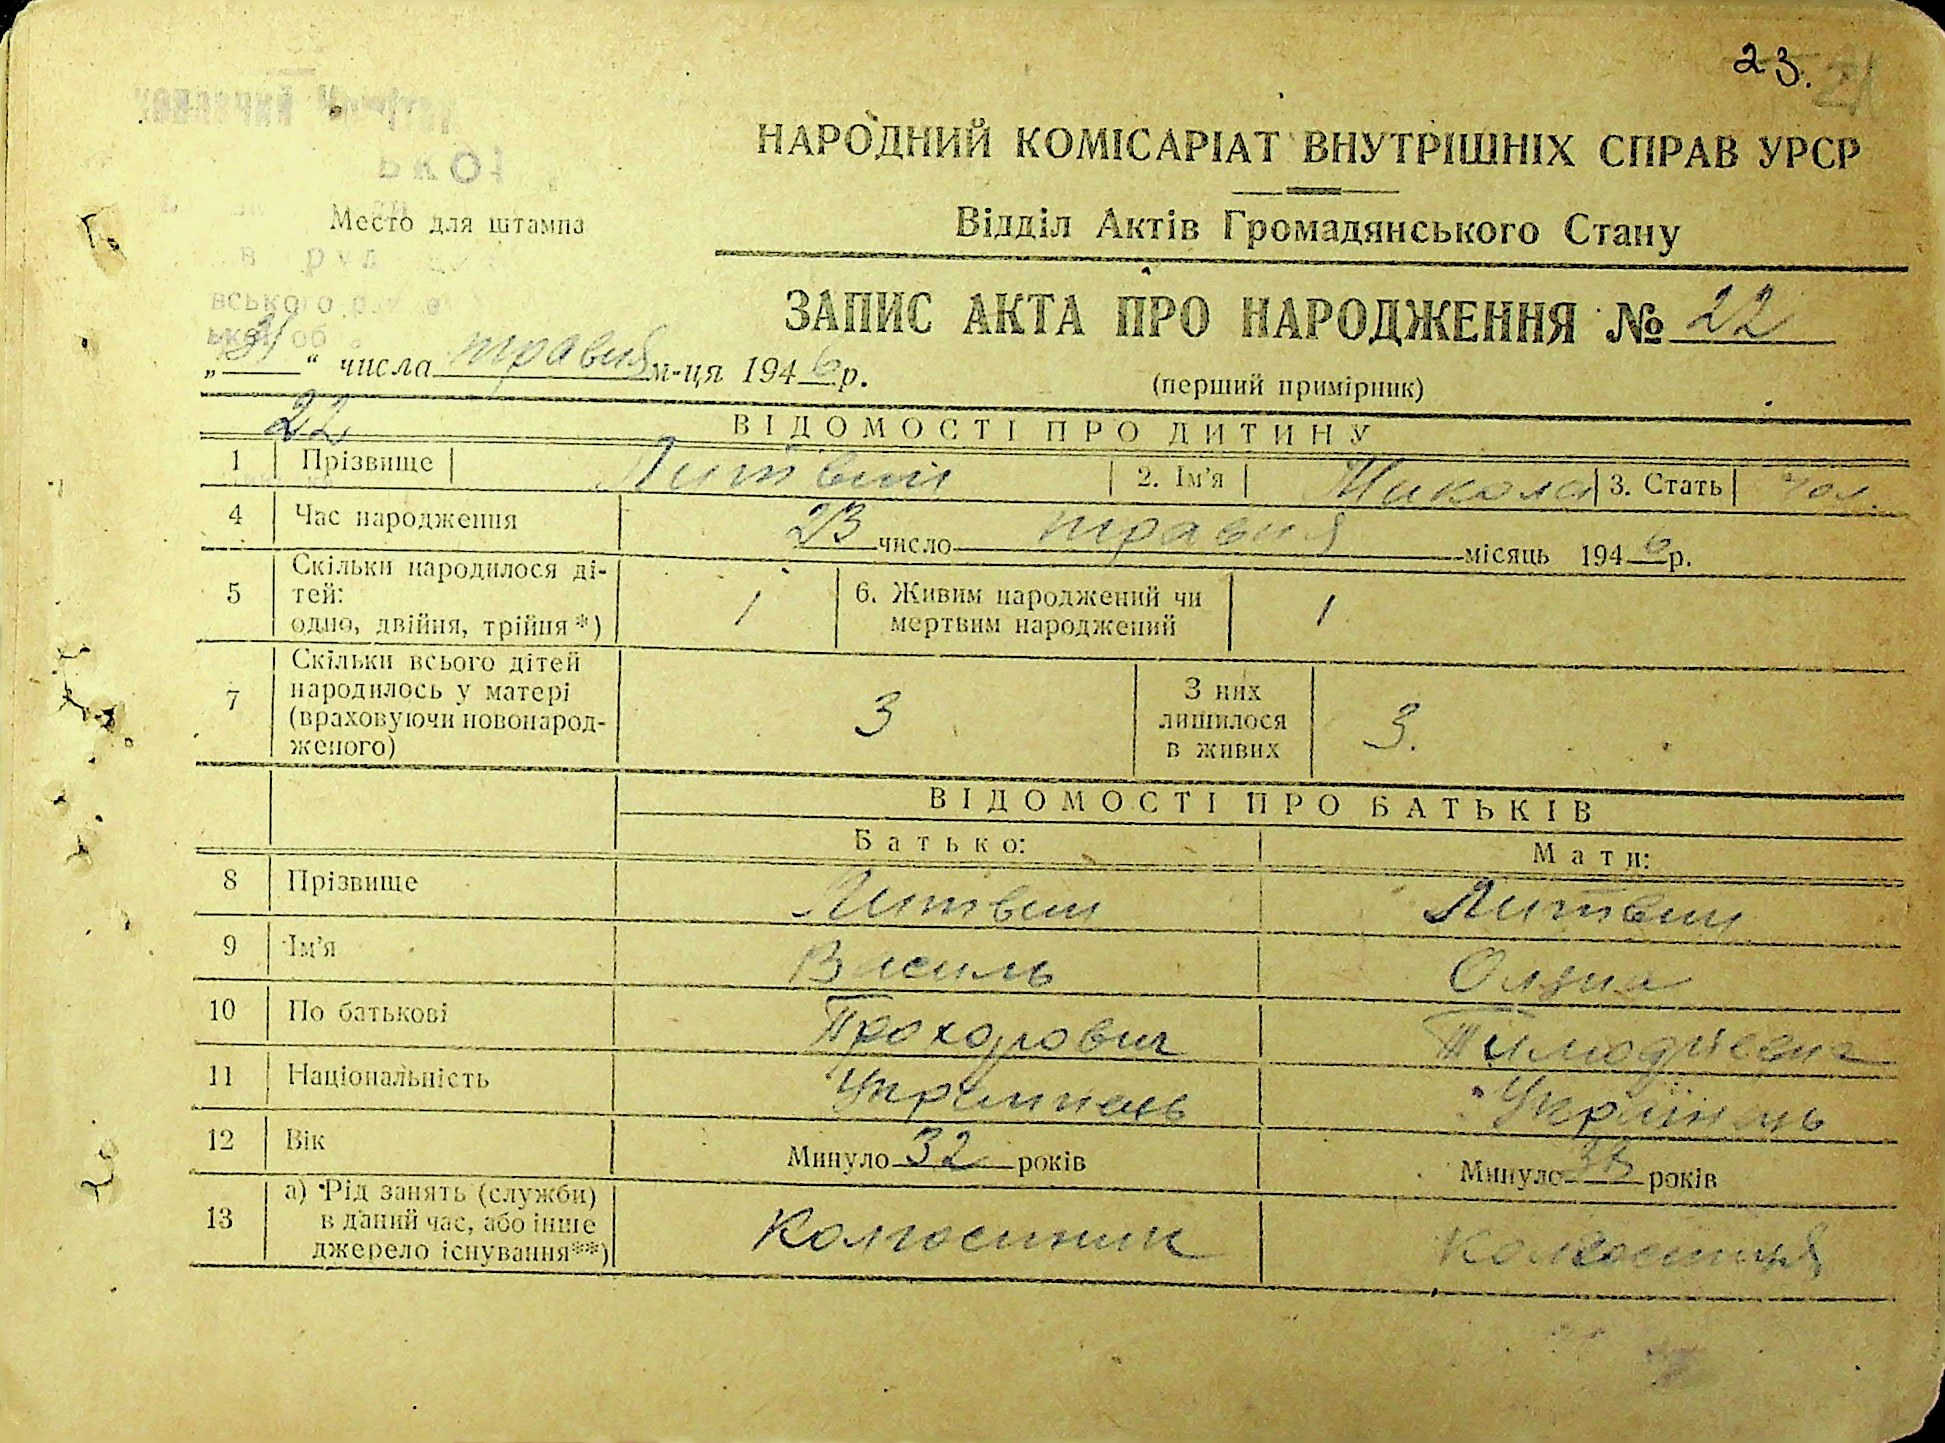 23.
НАРОДНИЙ КОМІСАРІАТ ВНУТРІШНІХ СПРАВ УРСР
Место для штампа
Відділ Актів Громадянського Стану
ЗАПИС АКТА ПРО НАРОДЖЕННЯ № 22
„31“ числа травня м-ця 1946 р.
(перший примірник)
22
ВІДОМОСТІ ПРО ДИТИНУ
1 Прізвище Литвин 2. Ім'я Микола 3. Стать чол.
4 Час народження 23 число травня місяць 1946 р.
5 Скільки народилося ді-
тей:
одно, двійня, трійня*) 1
6. Живим народжений чи
мертвим народжений 1
7 Скільки всього дітей
народилось у матері
(враховуючи новонарод-
женого) 3
З них
лишилося
в живих 3.
ВІДОМОСТІ ПРО БАТЬКІВ
Батько: Мати:
8 Прізвище Литвин Литвин
9 Ім'я Василь
10 По батькові Прохорович
11 Національність Українець Українець
12 Вік Минуло 32 років Минуло років
13 а) Рід занять (служби)
в даний час, або інше
джерело існування**)
Колгоспник